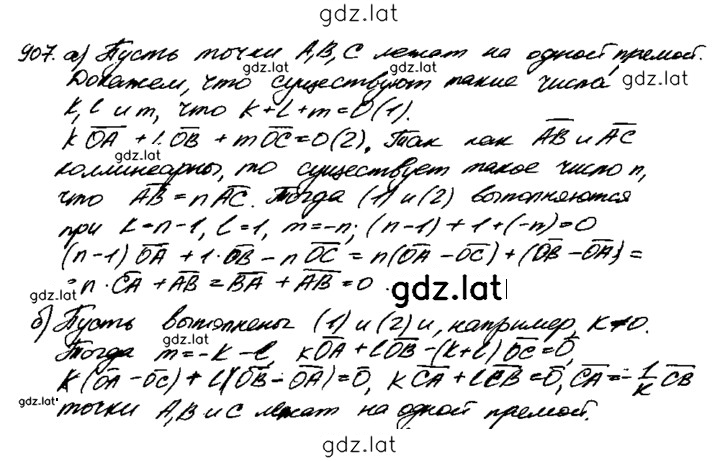 gdz.lat
907. а) Пусть точки A, B, C лежат на одной прямой.
gdz.lat gdz.lat
Докажем, что существуют такие числа gdz.lat
k, l и m, что k + l + m = 0 (1).
k OA + l · OB + m OC = 0 (2). Так как AB и AC
gdz.lat
коллинеарны, то существует такое число n,
что AB = n AC. Тогда (1) и (2) выполняются
при k = n - 1, l = 1, m = -n; (n-1) + 1 + (-n) = 0
(n-1) OA + 1 · OB - n OC = n(OA - OC) + (OB - OA) =
= n · CA + AB = BA + AB = 0.
gdz.lat gdz.lat
б) Пусть выполнены (1) и (2) и, например, k ≠ 0.
gdz.lat
Тогда m = -k - l, k OA + l OB - (k + l) OC = 0,
k (OA - OC) + l (OB - OA) = 0, k CA + l CB = 0, CA = - l/k CB
gdz.lat
точки A, B и C лежат на одной прямой.
gdz.lat